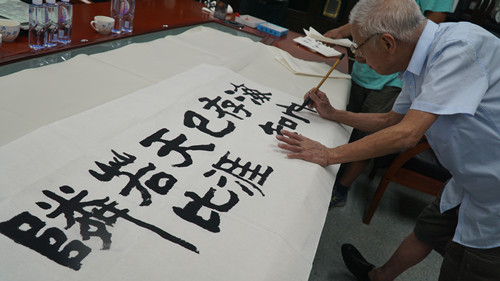 海
存知
己
天涯
若比
鄰